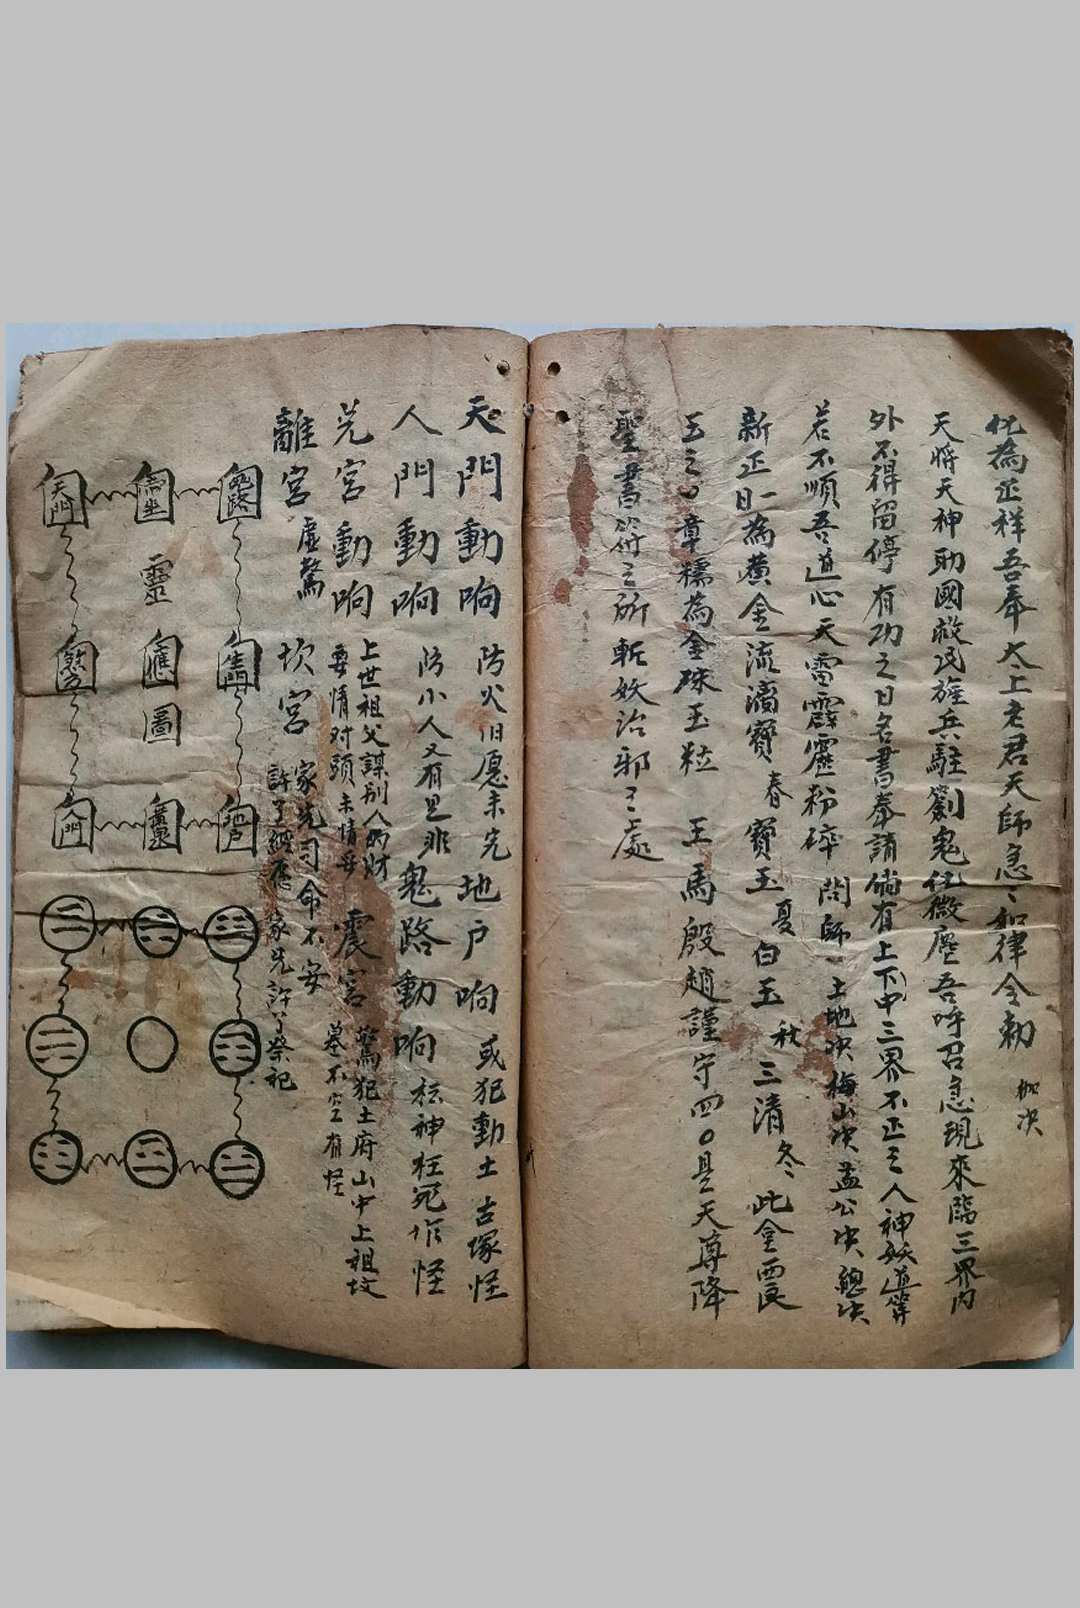 化為正祥吾奉太上老君天師急〻如律令勅　枷决
天將天神助國救民旌兵駐劄鬼化微塵吾呼召急現來臨三界內
外不得留停有功之日名書奏請倘有上下中三界不正之人神妖道等
若不順吾道心天雷霹靂粉碎　問師　土地决梅山决孟公决總决
新正日一為黃金流滴寶　春　寶玉　夏　白玉　秋　三清　冬　此拿
玉之〇章糯為金珠玉粒　王馬殷趙謹守四〇是天尊降
聖書符之所斬妖治邪之處
天門動响　防火旧愿未完　地户响　或犯動土古塚怪
人門動响　防小人又有是非　鬼路動响　枉死作怪
兑宮動响　上世祖父謀别人的財
要情对頭未情安　震宮　驚犯土府山中上祖坟
墓不空有怪
離宮　虛驚　坎宮　家先司命不安
許了經愿　家先許了祭祀
鬼路
生門
地户
靈應圖
黃泉
天門
人門